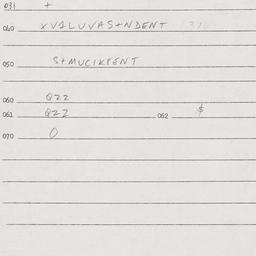 031 +
040 XVALUVAS+NDENT
050 S+MUCIKPENT
060 Q22
061 Q22 062 $
070 O